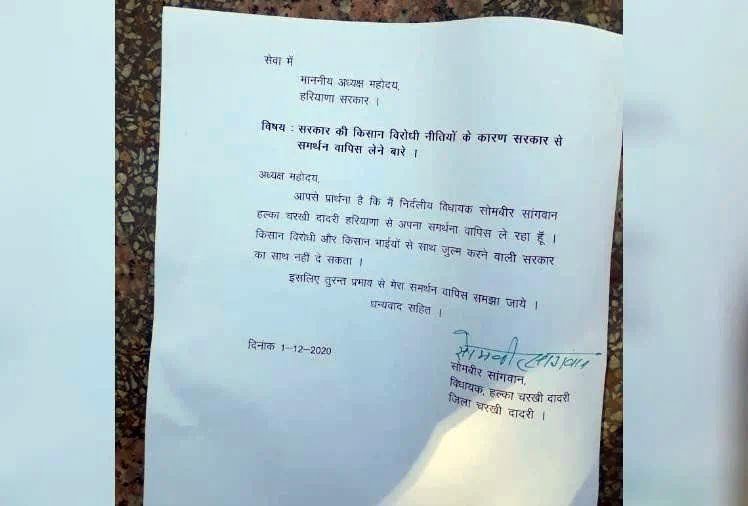 सेवा में
माननीय अध्यक्ष महोदय,
हरियाणा सरकार ।
विषय : सरकार की किसान विरोधी नीतियों के कारण सरकार से
समर्थन वापिस लेने बारे ।
अध्यक्ष महोदय,
आपसे प्रार्थना है कि मैं निर्दलीय विधायक सोमबीर सांगवान
हल्का चरखी दादरी हरियाणा से अपना समर्थना वापिस ले रहा हूँ ।
किसान विरोधी और किसान भाईयों से साथ जुल्म करने वाली सरकार
का साथ नहीं दे सकता ।
इसलिए तुरन्त प्रभाव से मेरा समर्थन वापिस समझा जाये ।
धन्यवाद सहित ।
दिनांक 1-12-2020
सोमवीर सांगवान
सोमबीर सांगवान,
विधायक, हल्का चरखी दादरी
जिला चरखी दादरी ।